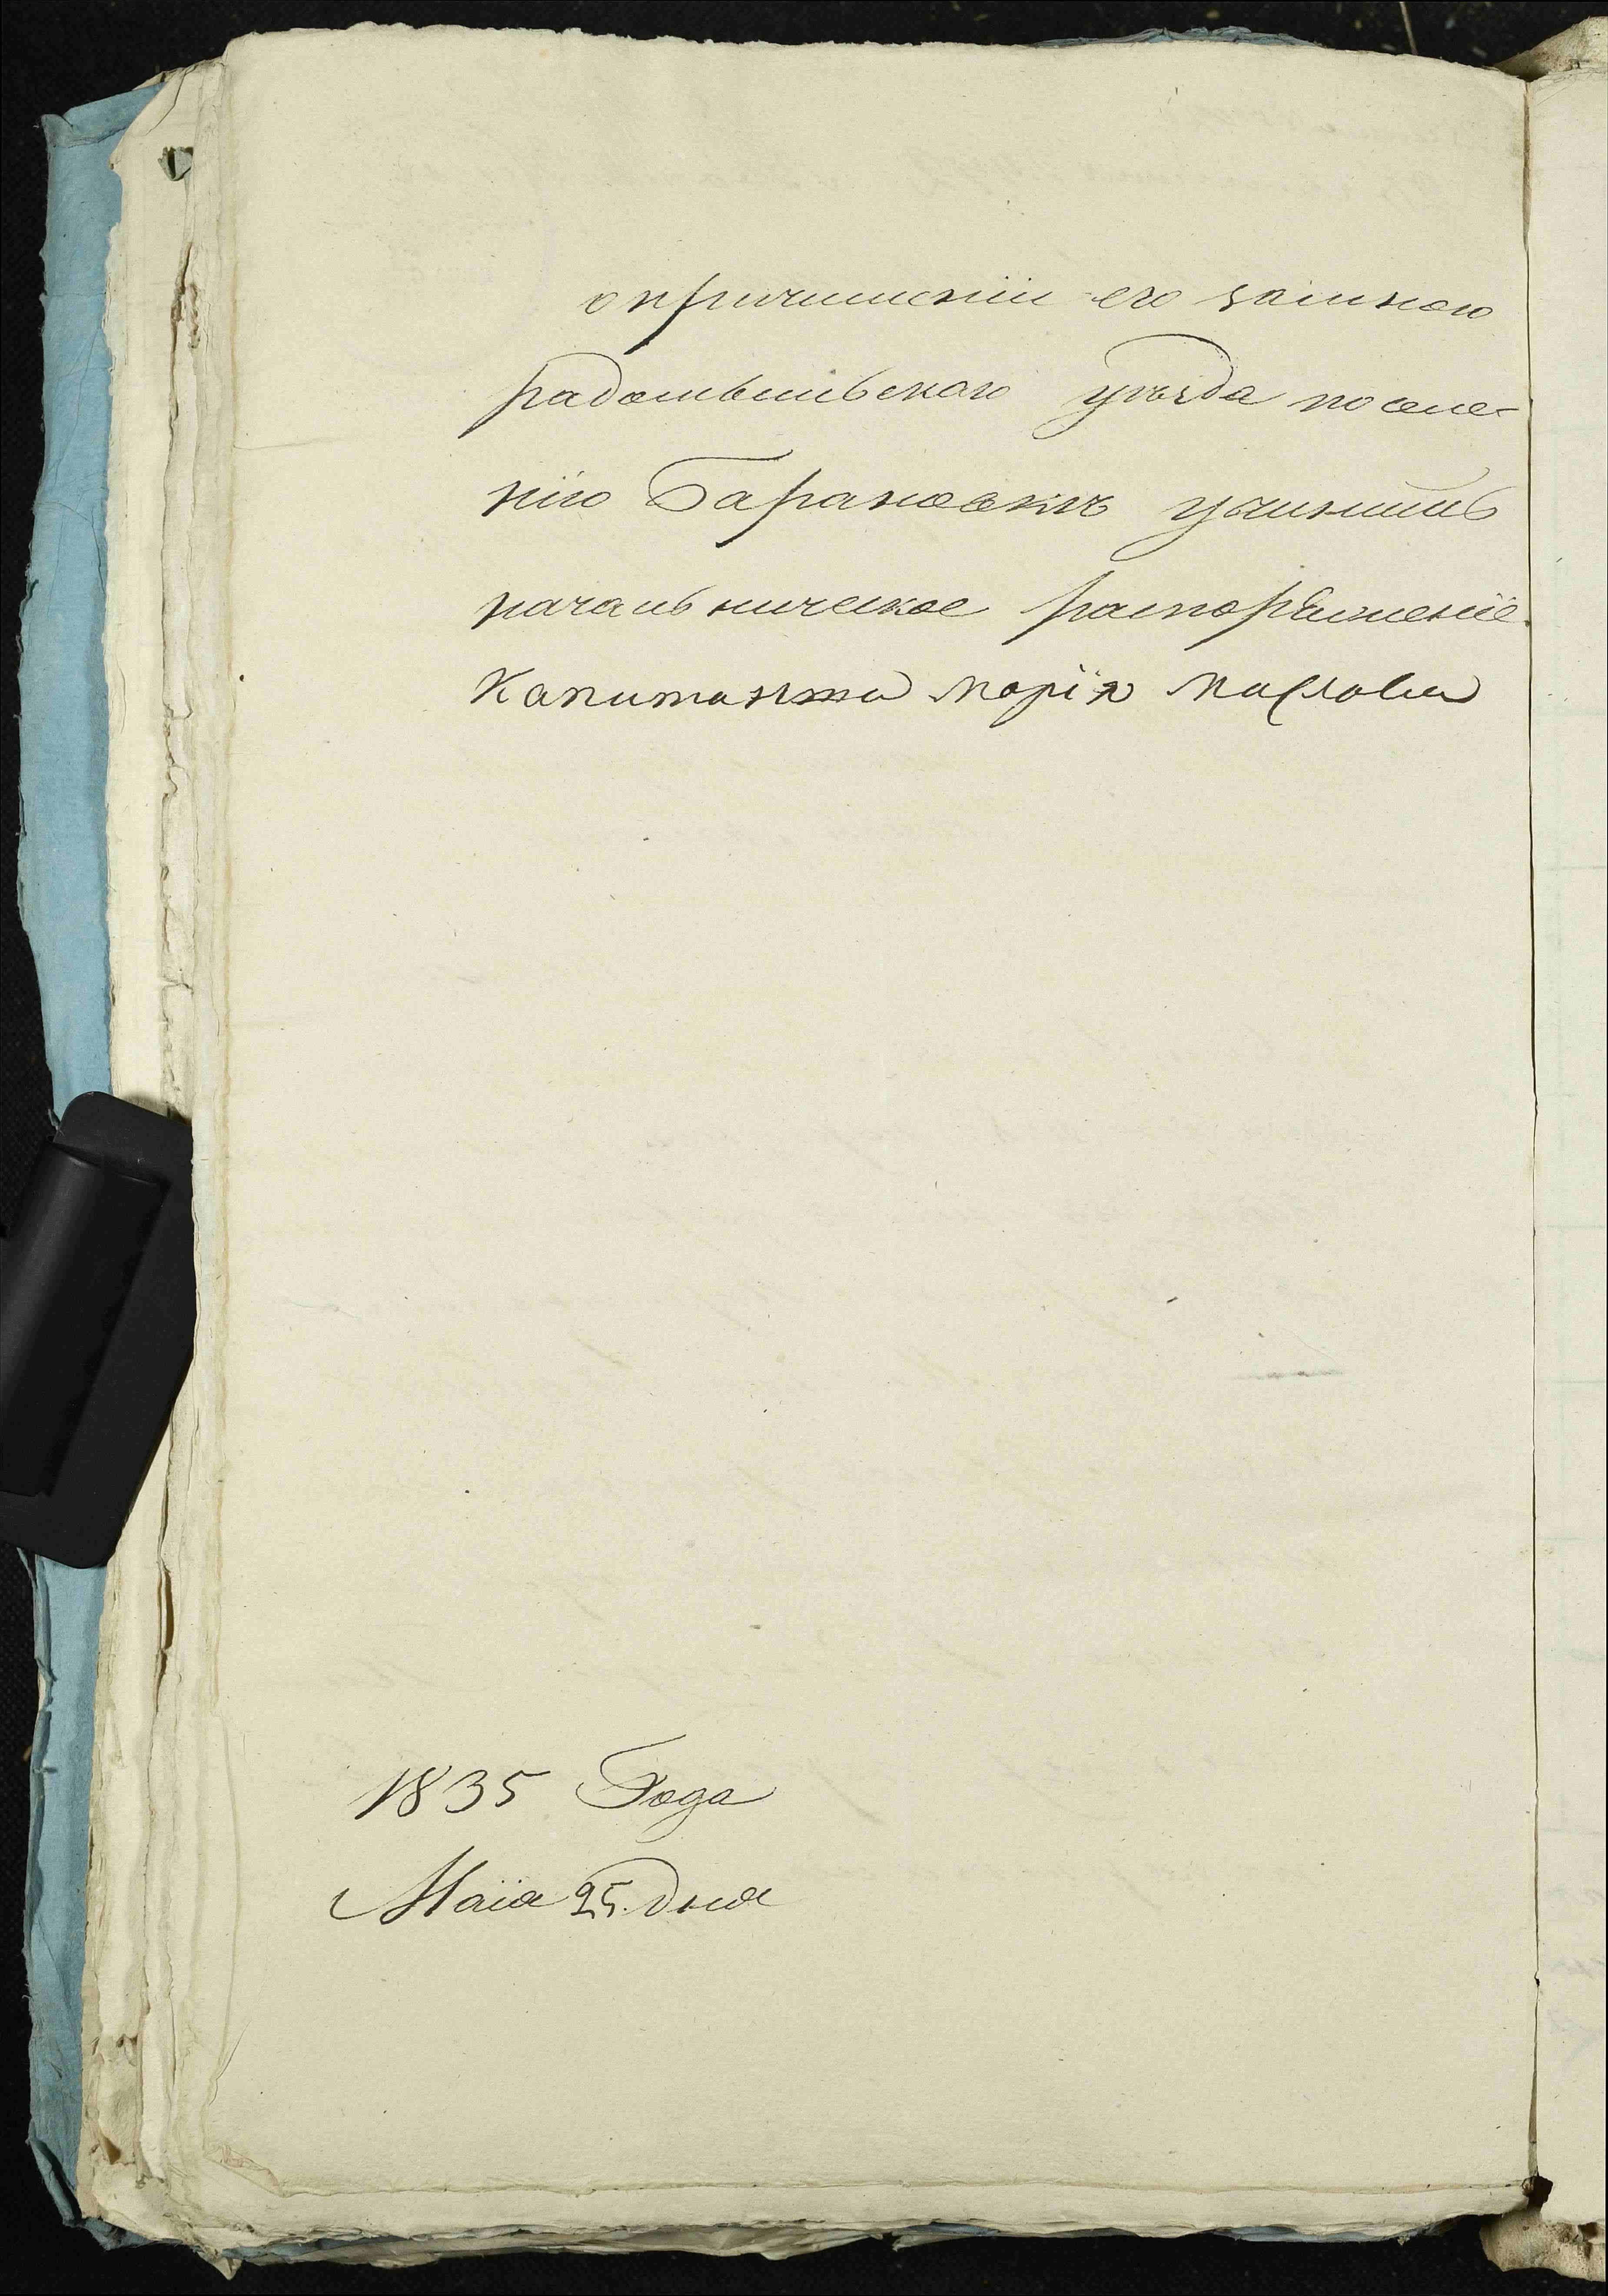 о причислении его замною
радомысльскаго уѣзда поселе-
нїю Барановкѣ учинить
начальническое распоряженїе.
Капитанша Марїя Маслова
1835 Года
Маїа 25. дня